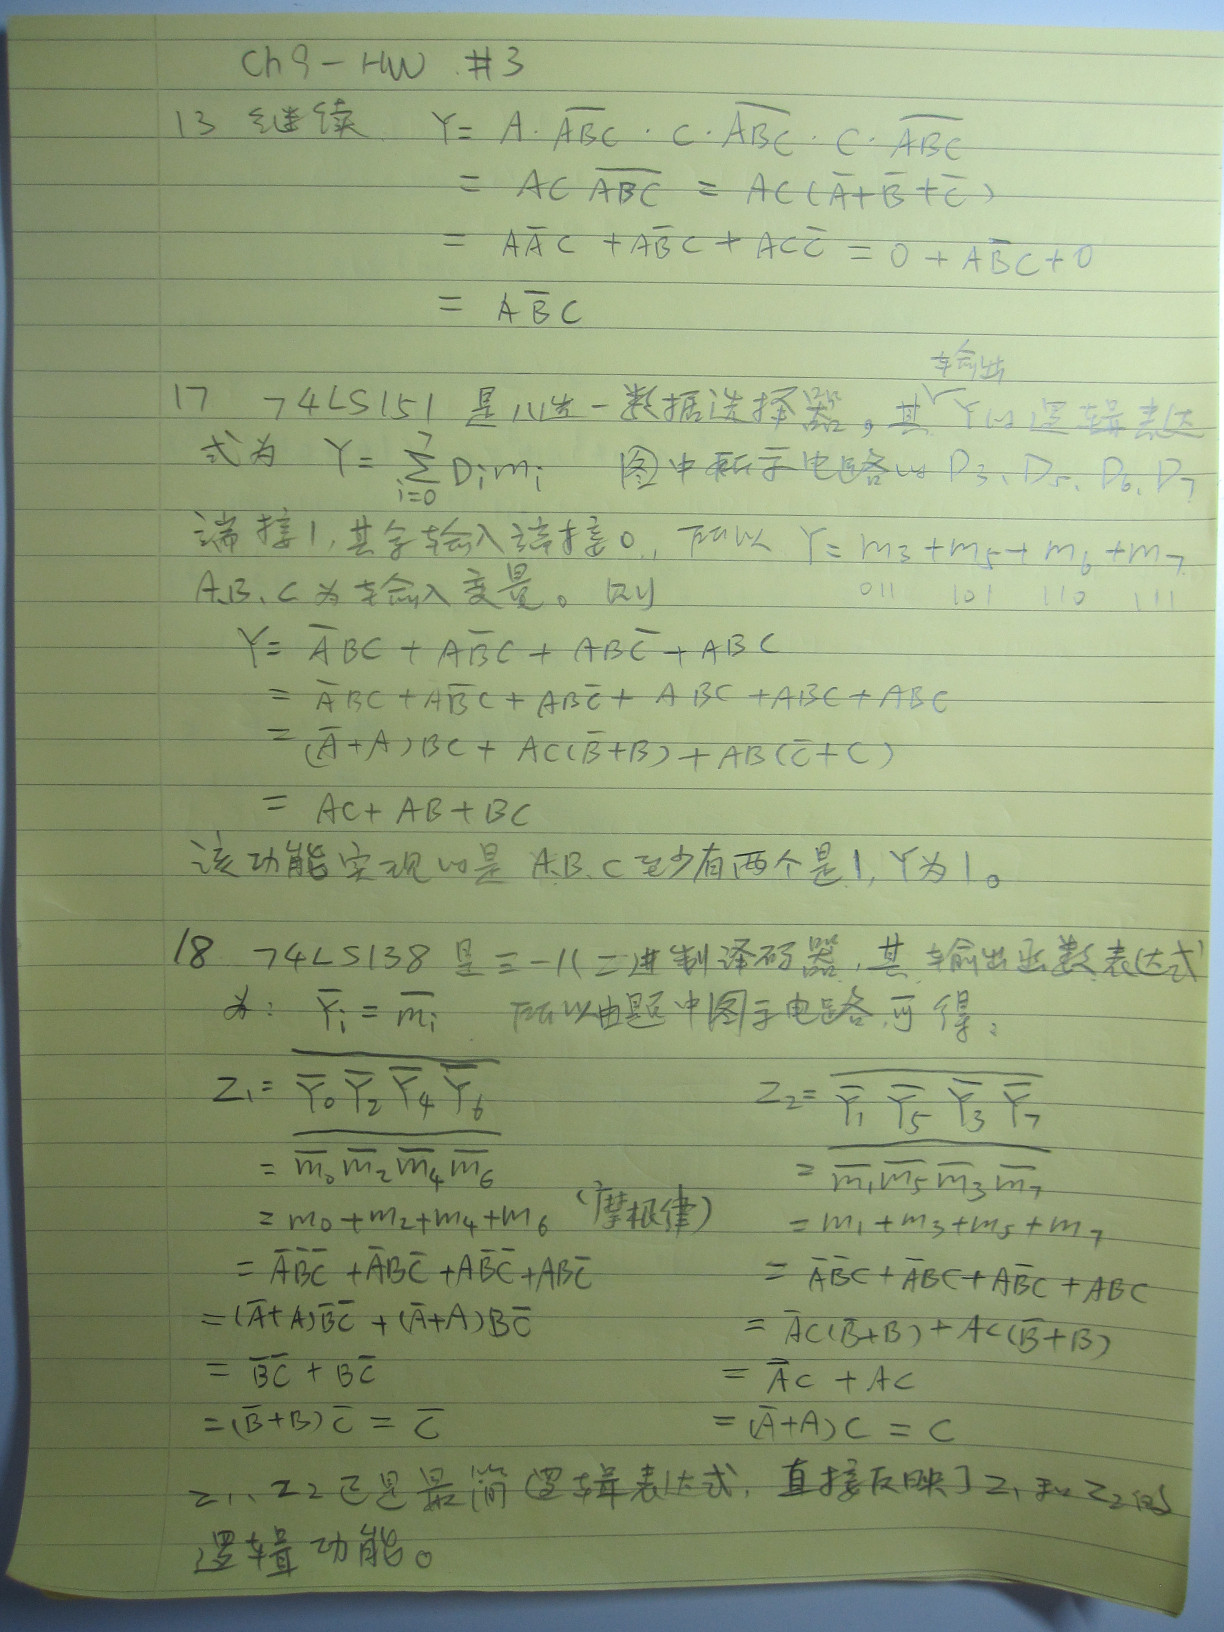 Ch9-HW #3
13 继续 Y= A·A̅B̅C̅·C·A̅B̅C̅·C·A̅B̅C̅
= AC \overline{ABC} = AC(A̅+B̅+C̅)
= AA̅C +AB̅C + ACC̅ = 0 + AB̅C+0
= AB̅C
输出
17 74LS151 是八选一数据选择器,其Y的逻辑表达
式为 Y= \sum_{i=0}^{7} Dimi 图中所示电路的D3、D5、D6、D7
端接1,其余输入端接0,所以 Y= m3+m5+m6+m7
A、B、C为输入变量。则 011 101 110 111
Y= A̅BC + AB̅C + ABC̅ + ABC
= A̅BC + AB̅C + ABC̅ + ABC + ABC + ABC
= (A̅+A)BC + AC(B̅+B) + AB(C̅+C)
= AC+AB+BC
该功能实现的是 A.B.C至少有两个是1,Y为1。
18 74LS138是三一八二进制译码器,其输出函数表达式
为: Y̅i = m̅i 所以由题中图示电路可得:
Z1= \overline{Y̅0 Y̅2 Y̅4 Y̅6} Z2= \overline{Y̅1 Y̅5 Y̅3 Y̅7}
= \overline{m̅0 m̅2 m̅4 m̅6} = \overline{m̅1 m̅5 m̅3 m̅7}
= m0+m2+m4+m6 (摩根律) = m1+m3+m5+m7
= A̅B̅C̅ + A̅BC̅ + AB̅C̅ + ABC̅ = A̅B̅C + A̅BC + AB̅C + ABC
= (A̅+A)B̅C̅ + (A̅+A)BC̅ = A̅C(B̅+B) + AC(B̅+B)
= B̅C̅ + BC̅ = A̅C + AC
= (B̅+B)C̅ = C̅ = (A̅+A)C = C
Z1、Z2已是最简逻辑表达式,直接反映了Z1和Z2的
逻辑功能。